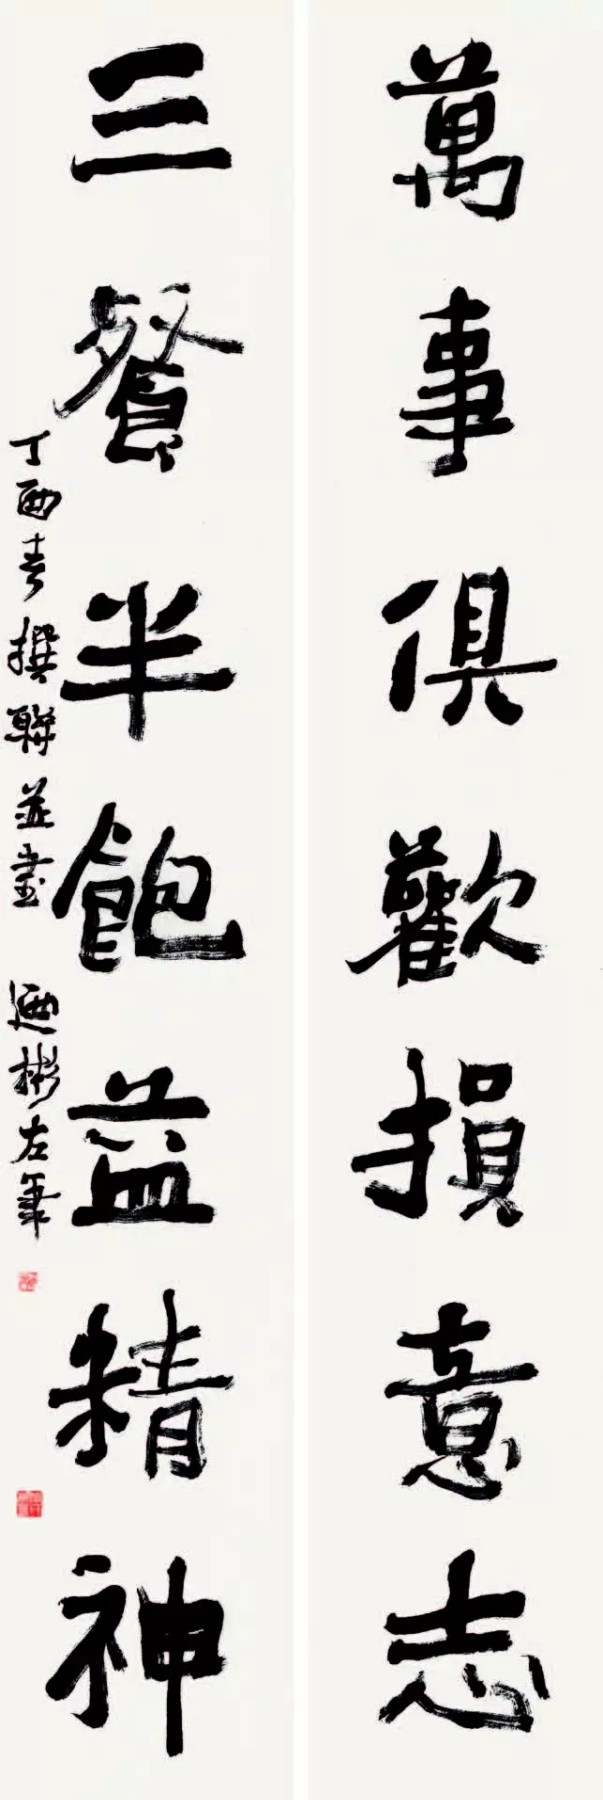 萬事俱歡損意志
三餐半飽益精神
丁酉春撰聯並書
迺彬左筆